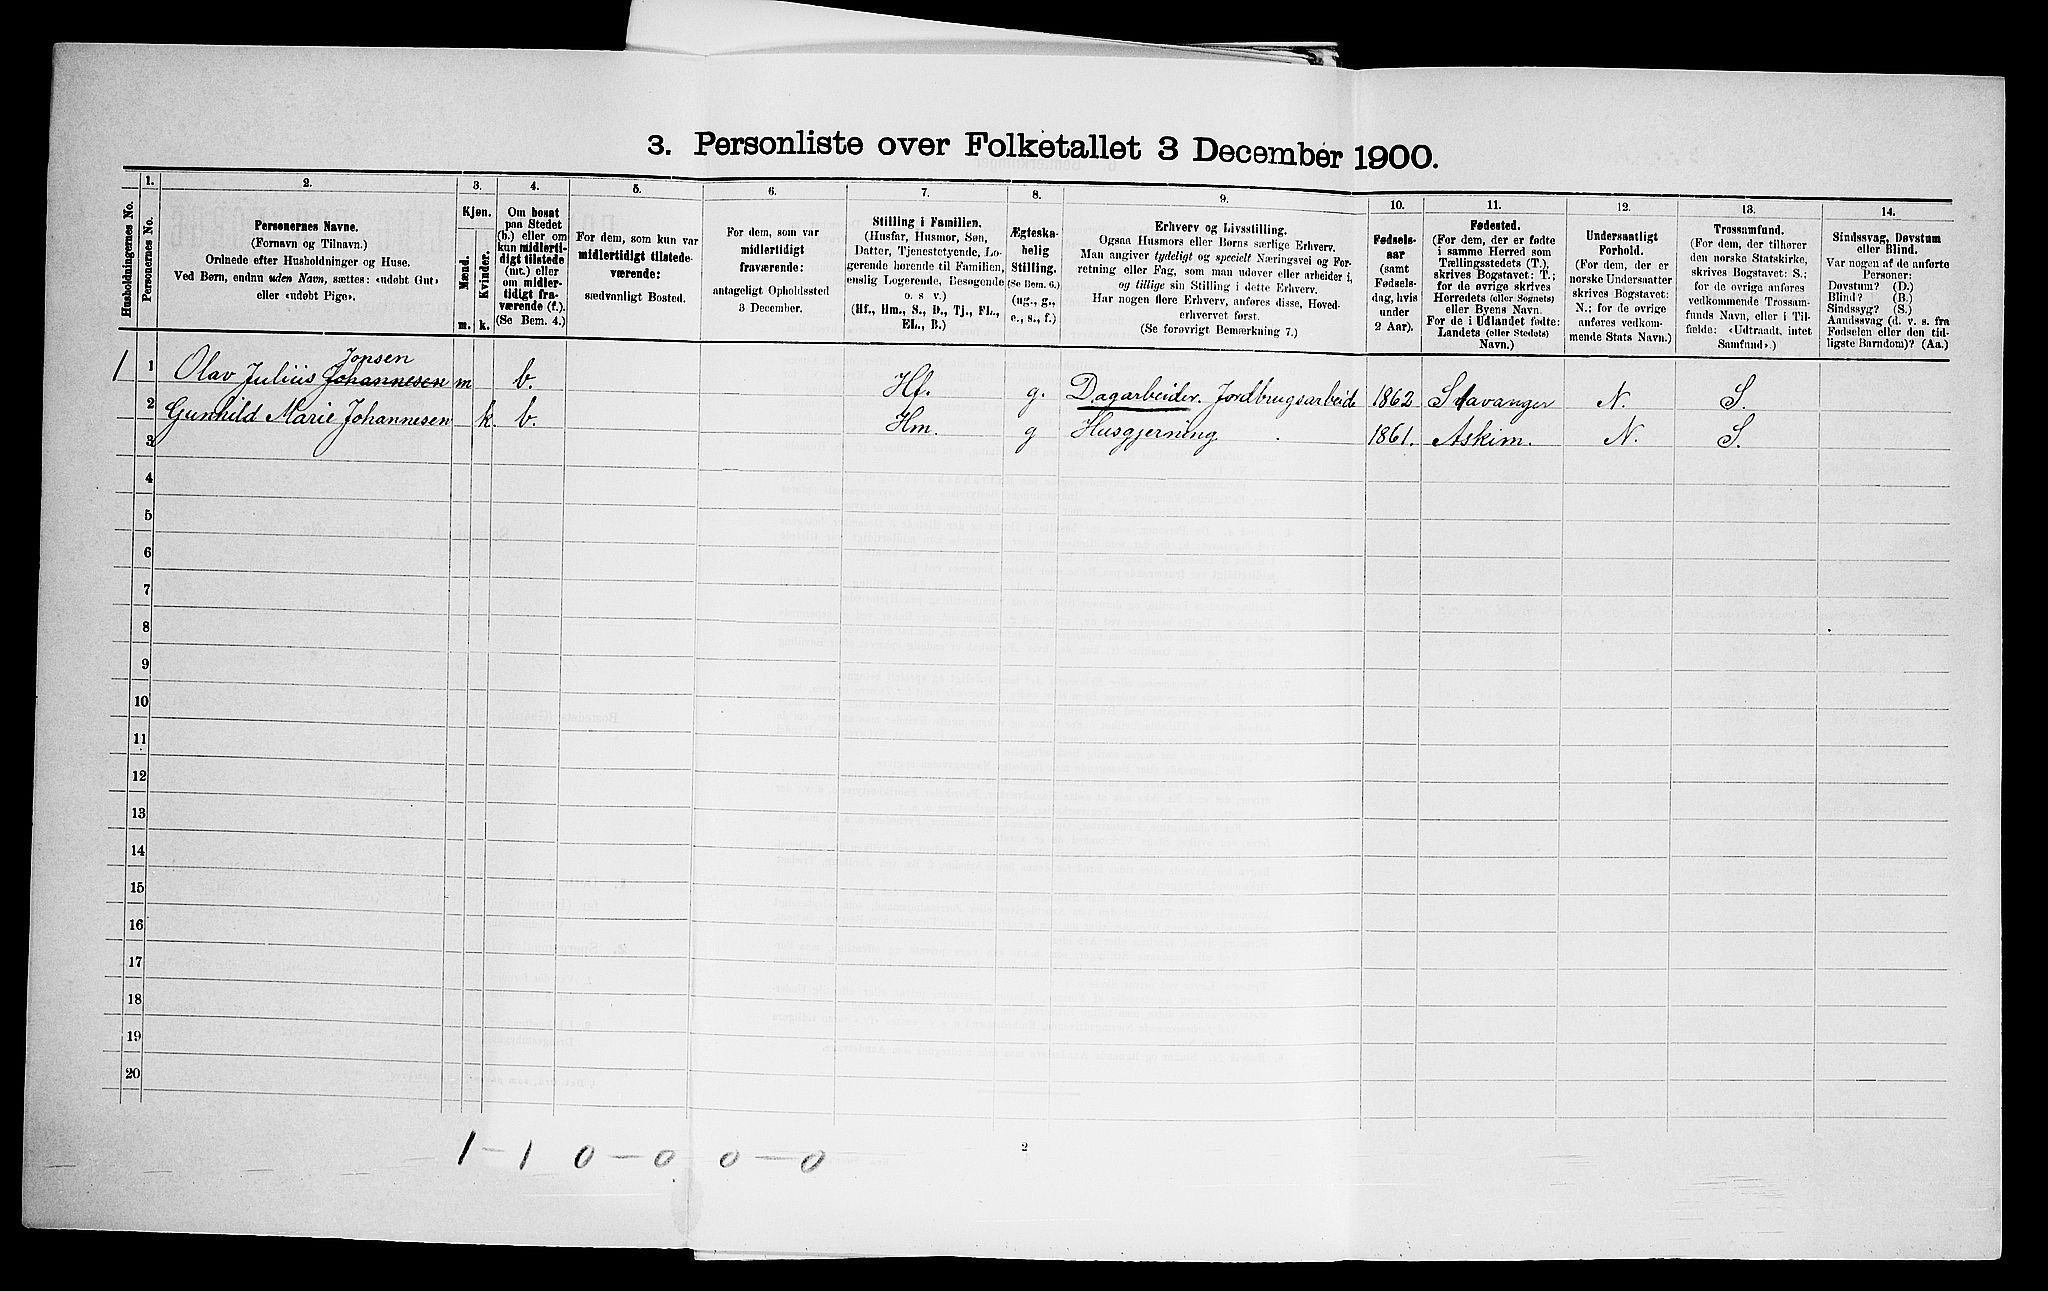 3. Personliste over Folketallet 3 December 1900.
Husholdningernes No.
1.
Personernes No.
2.
Personernes Navne.
(Fornavn og Tilnavn.)
Ordnede efter Husholdninger og Huse.
Ved Børn, endnu uden Navn, sættes: «udøbt Gut»
eller «udøbt Pige».
3.
Kjøn.
Mænd.
Kvinder.
m. k.
4.
Om bosat
paa Stedet
(b.) eller om
kun midlerti-
digt tilstede
(mt.) eller
om midler-
tidigt fra-
værende (f.).
(Se Bem. 4.)
5.
For dem, som kun var
midlertidigt tilstede-
værende:
sædvanligt Bosted.
6.
For dem, som var
midlertidigt
fraværende:
antageligt Opholdssted
3 December.
7.
Stilling i Familien.
(Husfar, Husmor, Søn,
Datter, Tjenestetyende, Lo-
gerende hørende til Familien,
enslig Logerende, Besøgende
o. s v.)
(Hf., Hm., S., D., Tj., FL.,
EL., B.)
8.
Ægteska-
belig
Stilling.
(Se Bem. 6.)
(ug., g.,
e., s., f.)
9.
Erhverv og Livsstilling.
Ogsaa Husmors eller Børns særlige Erhverv.
Man angiver tydeligt og specielt Næringsvei og For-
retning eller Fag, som man udøver eller arbeider i,
og tillige sin Stilling i dette Erhverv.
Har nogen flere Erhverv, anføres disse, Hoved-
erhvervet først.
(Se forøvrigt Bemærkning 7.)
10.
Fødsels-
aar
(samt
Fødsels-
dag, hvis
under
2 Aar).
11.
Fødested.
(For dem, der er fødte
i samme Herred som
Tællingsstedets (T.),
skrives Bogstavet: T.;
for de øvrige skrives
Herredets (eller Sognets)
eller Byens Navn.
For de i Udlandet fødte:
Landets (eller Stedets)
Navn.)
12.
Undersaatligt
Forhold.
(For dem, der er
norske Undersaatter
skrives Bogstavet:
N.; for de øvrige
anføres vedkom-
mende Stats Navn.)
13.
Trossamfund.
(For dem, der tilhører
den norske Statskirke,
skrives Bogstavet: S.;
for de øvrige anføres
vedkommende Trossam-
funds Navn, eller i Til-
fælde: «Udtraadt, intet
Samfund».)
14.
Sindssvag, Døvstum
eller Blind.
Var nogen af de anførte
Personer:
Døvstum? (D.)
Blind? (B.)
Sindssyg? (S.)
Aandssvag (d. v. s. fra
Fødselen eller den tid-
ligste Barndom)? (Aa.)
Jonsen
1 1 Olav Julius Johannesen m b. Hf. g. Dagarbeider. Jordbrugsarbeide 1862 Stavanger N. S.
2 Gunhild Marie Johannesen k. b. Hm. g Husgjerning. 1861. Askim. N. S.
3
4
5
6
7
8
9
10
11
12
13
14
15
16
17
18
19
20
1 – 1 0 – 0 0 – 0
2